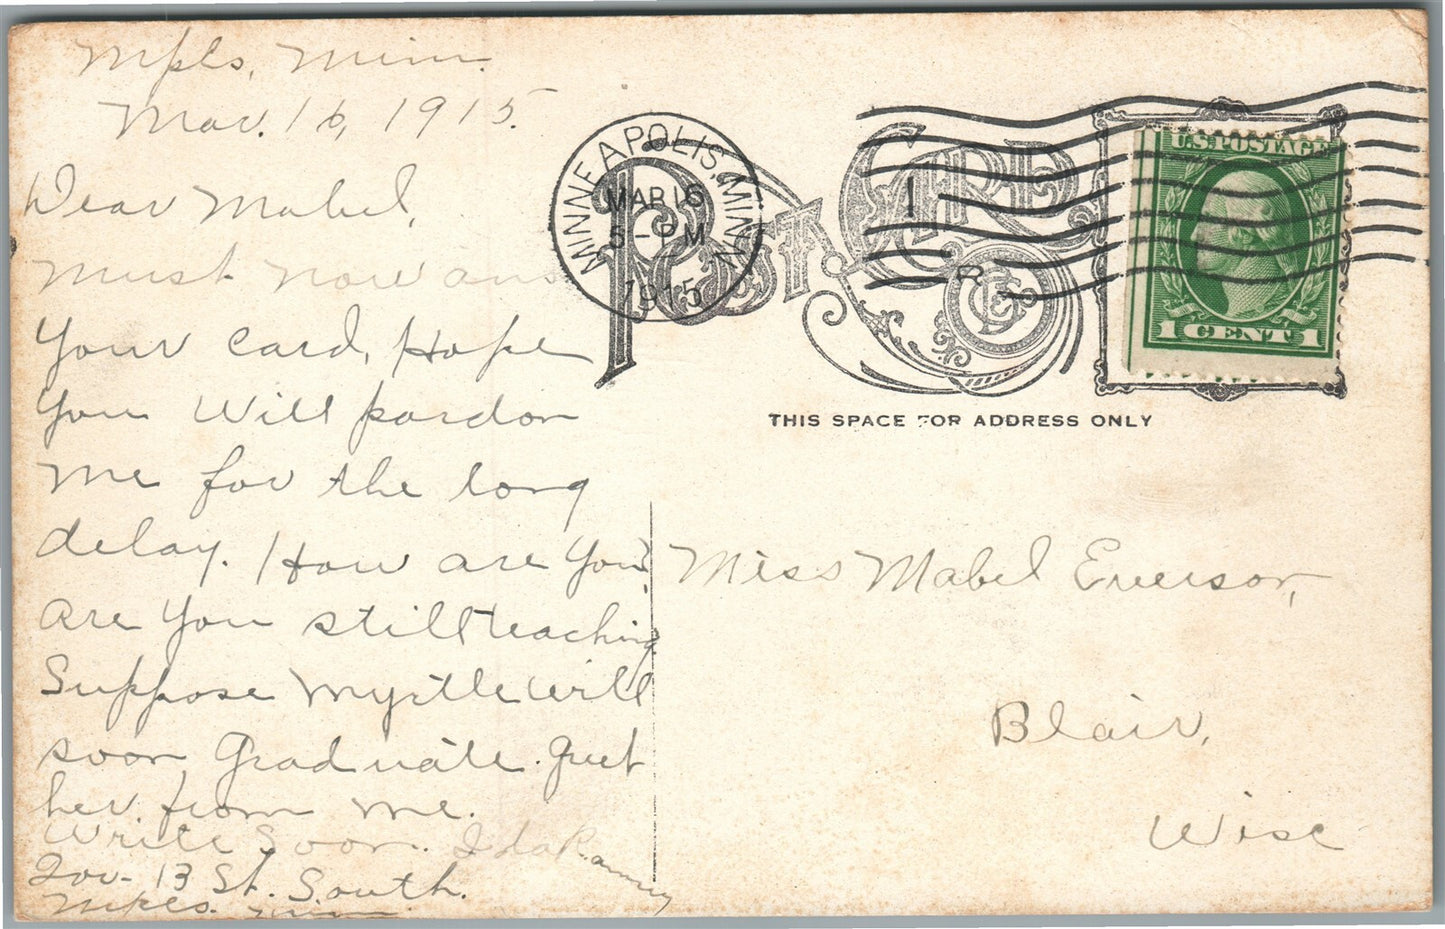 Mpls, Minn.
Mar. 16, 1915.
Dear Mabel,
Must now ans
Your Card, Hope
You Will pardon
me for the long
delay. How are You?
are You still teaching?
Suppose Myrtle will
soon Graduate. Greet
her from me.
Write Soon. Ida
13 St. South.
Mpls. Minn.
MINNEAPOLIS, MINN.
MAR 16
5 - PM
1915
POST CARD
1
R
U.S. POSTAGE
1 CENT 1
THIS SPACE FOR ADDRESS ONLY
Miss Mabel Everson,
Blair,
Wisc